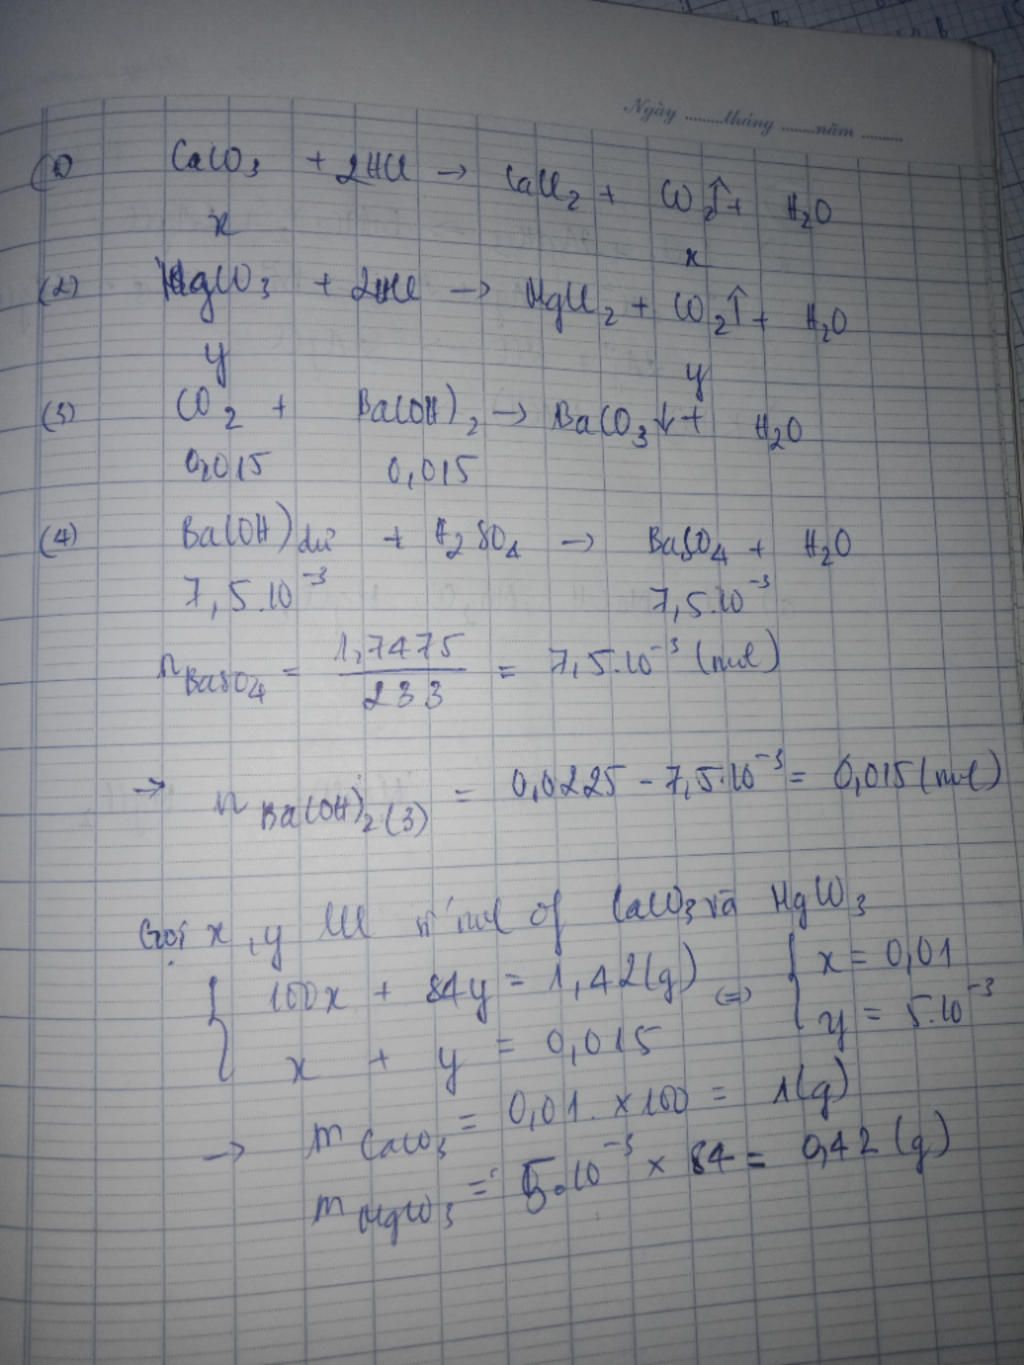 Ngày ........tháng .......năm .........
(1) CaCO3 + 2HCl → CaCl2 + CO2↑ + H2O
x x
(2) MgCO3 + 2HCl → MgCl2 + CO2↑ + H2O
y y
(3) CO2 + Ba(OH)2 → BaCO3↓ + H2O
0,015 0,015
(4) Ba(OH) dư + H2SO4 → BaSO4 + H2O
7,5.10⁻³ 7,5.10⁻³
nBaSO4 = 1,7475/233 = 7,5.10⁻³ (mol)
→ nBa(OH)2(3) = 0,0225 - 7,5.10⁻³ = 0,015 (mol)
Gọi x, y n mol of CaCO3 và MgCO3
{ 100x + 84y = 1,42(g) ⇔ { x = 0,01
x + y = 0,015 y = 5.10⁻³
→ mCaCO3 = 0,01. x 100 = 1(g)
mMgCO3 = 5.10⁻³ x 84 = 0,42 (g)